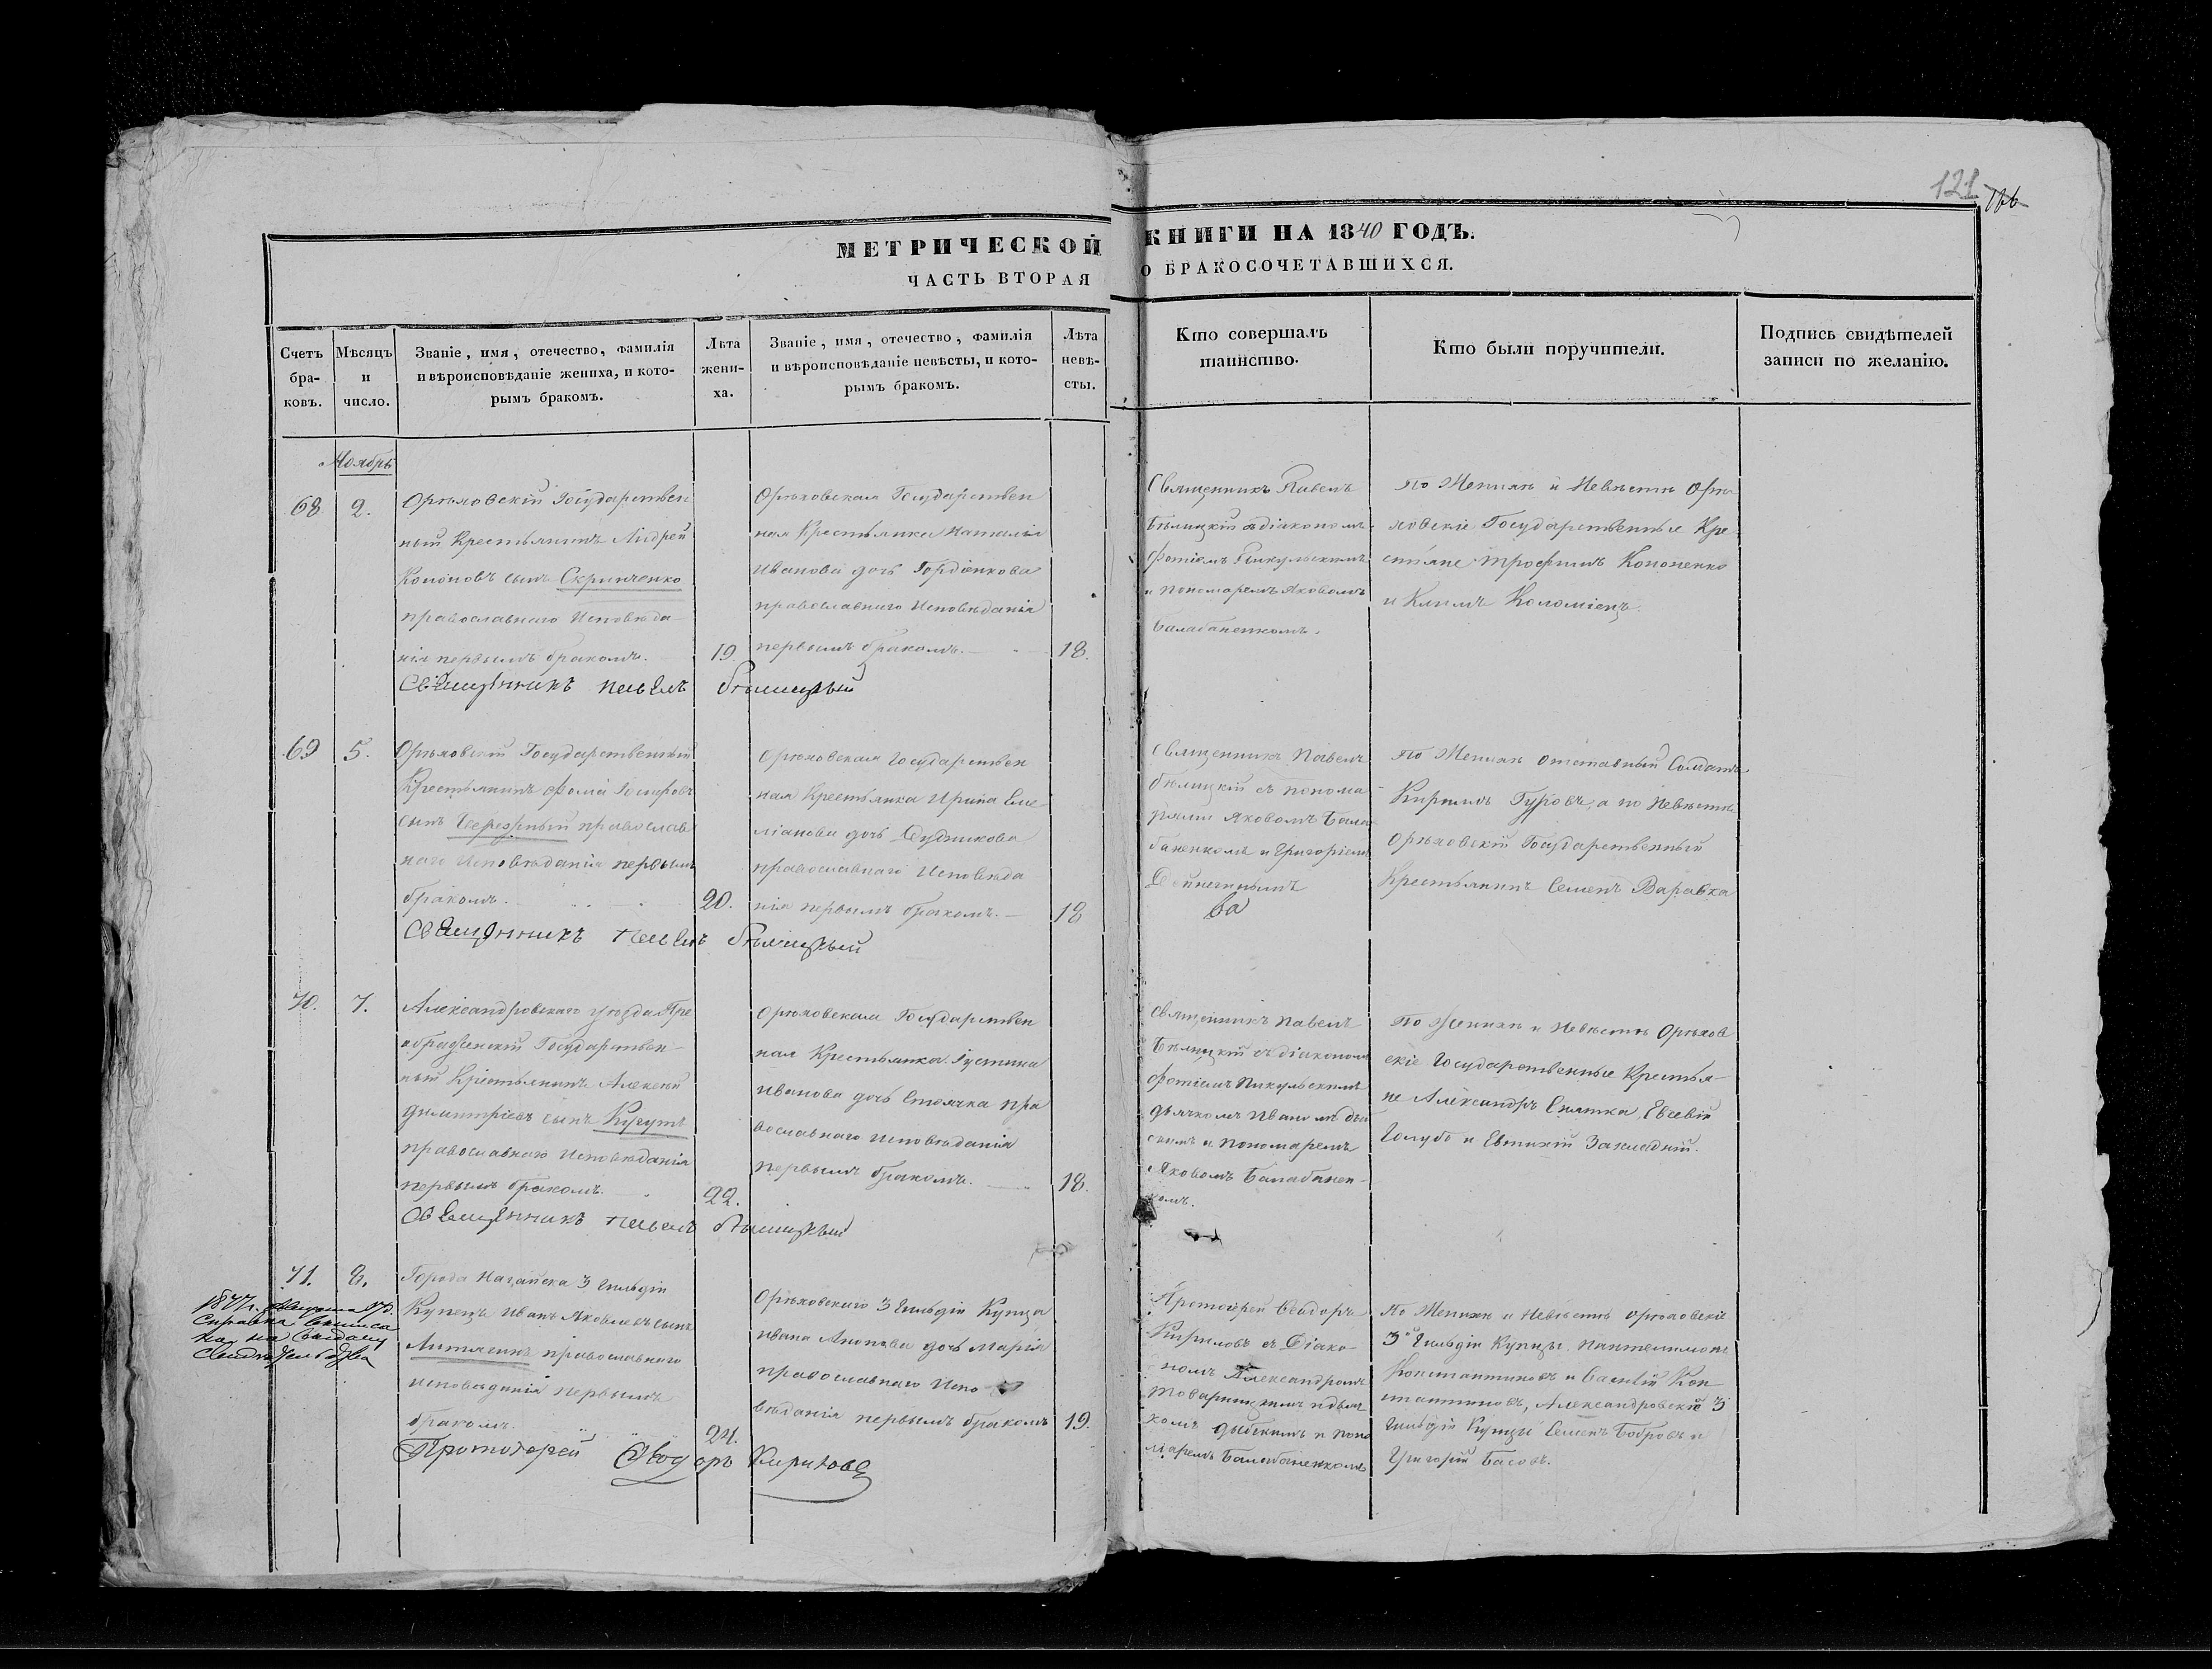 121
МЕТРИЧЕСКОЙ КНИГИ НА 1840 ГОДЪ.
ЧАСТЬ ВТОРАЯ О БРАКОСОЧЕТАВШИХСЯ.
Счетъ бра-ковъ.
Мѣсяцъ и число.
Званіе, имя, отечество, фамилія
и вѣроисповѣданіе жениха, и кото-
рымъ бракомъ.
Лѣта жени-ха.
Званіе, имя, отечество, фамилія
и вѣроисповѣданіе невѣсты, и кото-
рымъ бракомъ.
Лѣта невѣ-сты.
Кто совершалъ
таинство.
Кто были поручители.
Подпись свидѣтелей
записи по желанію.
Ноябрь
68
2.
Орѣховскій Государствен
ный Крестьянинъ Андрей
Кононовъ сынъ Скрипченко
православнаго Исповѣда
нія первымъ бракомъ.
19.
Орѣховская Государствен
ная Крестьянка Наталія
Иванова дочь Гордіенкова
православнаго Исповѣданія
первымъ бракомъ.
18.
Священникъ Павелъ
Бѣлицкій с діакономъ
Фотіемъ Пикульскимъ
и пономаремъ Яковомъ
Балабаненкомъ.
по Женихѣ и Невѣстѣ Орѣ
ховскіе Государственные Кре
стьяне Трофимъ Кононенко
и Климъ Коломіецъ.
Священникъ Павелъ Бѣлицкый
69
5.
Орѣховскій Государственный
Крестьянинъ Фома
сынъ православ
наго Исповѣданія первымъ
бракомъ.
20.
Орѣховская Государствен
ная Крестьянка Ирина Еме
ліанова дочь Судникова
православнаго Исповѣда
нія первымъ бракомъ.
18
Священникъ Павелъ
бѣлицкій съ понома
рями Яковомъ Бала
баненкомъ и Григоріемъ
ва
По Женихѣ отставный Солдатъ
Кирилъ Гуровъ, а по Невѣстѣ
Орѣховскій Государственный
Крестьянинъ Семенъ Варавка
Священникъ Павелъ Бѣлицкый
70.
7.
Александровскаго уѣзда Пре
ображенскій Государствен
ный Крестьянинъ Алексѣй
Димитріевъ сынъ Кугутъ
православнаго Исповѣданія
первымъ бракомъ.
22.
Орѣховская Государствен
ная Крестьянка Іустина
Иванова дочь пра
вославнаго Исповѣданія
первымъ бракомъ.
18.
Священникъ Павелъ
Бѣлицкій съ діакономъ
Фотіемъ Пикульскимъ
дьячкомъ Иваномъ Дыб
скимъ и Пономаремъ
Яковомъ Балабанен-
комъ.
По Женихѣ и Невѣстѣ Орѣхов
скіе Государственные Крестья-
не Александръ Евсевій
Голубъ и Евтихій Закладный.
Священникъ Павелъ Бѣлицкый
71.
8.
1877 г. Августа
Справка
на выдачу
свидѣтельства
Города Нагайска 3 Гильдіи
Купецъ Иванъ Яковлевъ сынъ
православнаго
исповѣданія первымъ
бракомъ.
24.
Орѣховскаго 3 Гильдіи Купца
Ивана дочь Марія
православнаго Испо
вѣданія первымъ бракомъ
19.
Протоіерей Ѳеодоръ
Кириловъ съ Діако-
номъ Александромъ
Товарницкимъ и дьяч
комъ Дыбскимъ и поно
маремъ Балабаненкомъ
По Женихѣ и Невѣстѣ Орѣховскіе
3й Гильдіи Купцы Пантелимонъ
Константиновъ и Василій Кон-
стантиновъ, Александровскіе 3
Гильдіи Купцы Семенъ Бобровъ и
Григорій Басовъ.
Протоіерей Ѳеодоръ Кириловъ